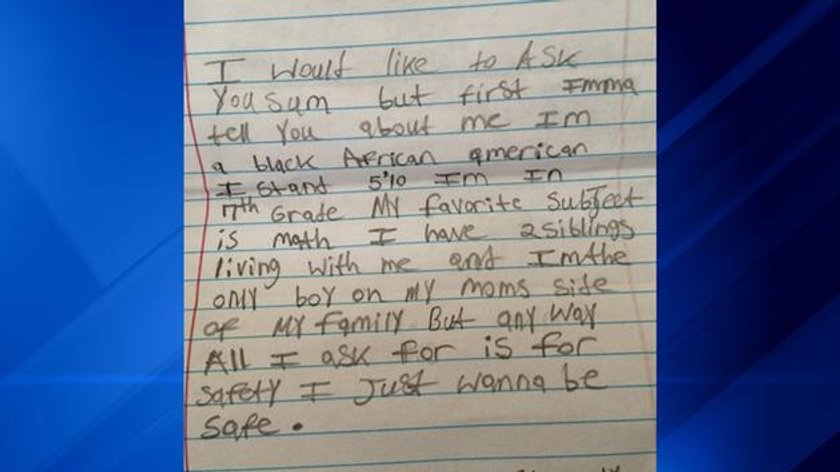 I would like to ASK
You sum but first Imma
tell You about me Im
a black African american
I stand 5'10 Im In
7th Grade My favorite Subject
is math I have 2 siblings
living with me and Im the
only boy on my moms side
of My family But any way
All I ask for is for
Safety I Just wanna be
Safe.